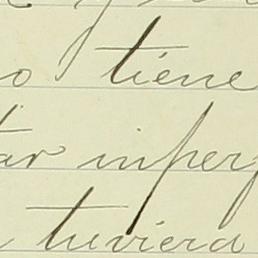 o tiene
tar imper
tuviera